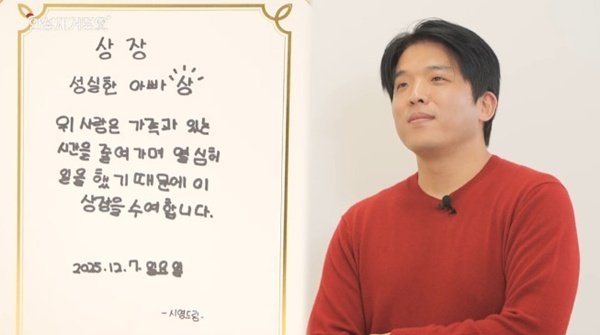 상장
성실한 아빠 상
위 사람은 가족과 있는
시간을 줄여가며 열심히
일을 했기 때문에 이
상장을 수여합니다.
2025.12.7 일요일
-시영드림-